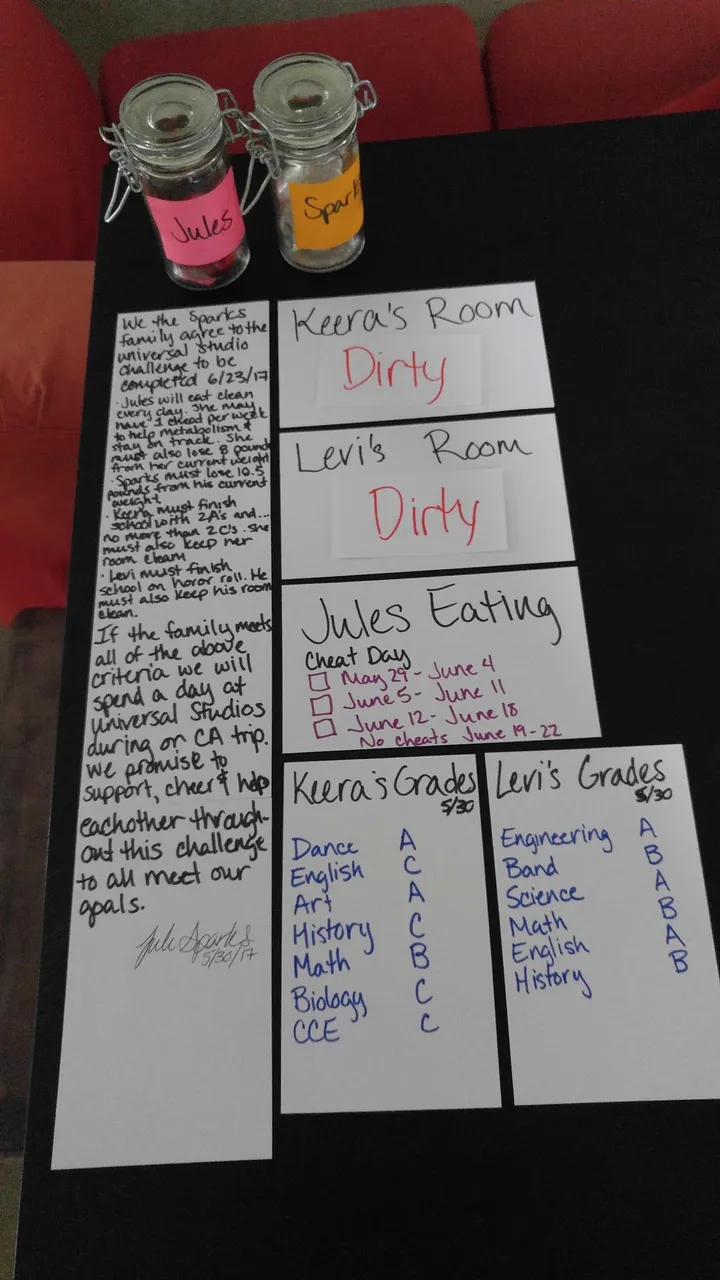 Jules
Spark
We the Sparks
family agree to the
universal studio
challenge to be
completed 6/23/17
· Jules will eat clean
every day. She may
have 1 cheat per week
to help metabolism &
stay on track. She
must also lose 8 pounds
from her current weight
· Sparks must lose 10.5
pounds from his current
weight
· Keera must finish
school with 2A's and...
no more than 2C's. she
must also keep her
room clean
· Levi must finish
school on honor roll. He
must also keep his room
clean.
If the family meets
all of the above
criteria we will
spend a day at
Universal Studios
during or CA trip.
we promise to
support, cheer & help
eachother through-
out this challenge
to all meet our
goals.
Juli Sparks
5/30/17
Keera's Room
Dirty
Levi's Room
Dirty
Jules Eating
Cheat Day
May 29 - June 4
June 5 - June 11
June 12 - June 18
No cheats June 19-22
Keera's Grades
5/30
Dance A
English C
Art A
History C
Math B
Biology C
CCE C
Levi's Grades
5/30
Engineering A
Band B
Science A
Math B
English A
History B